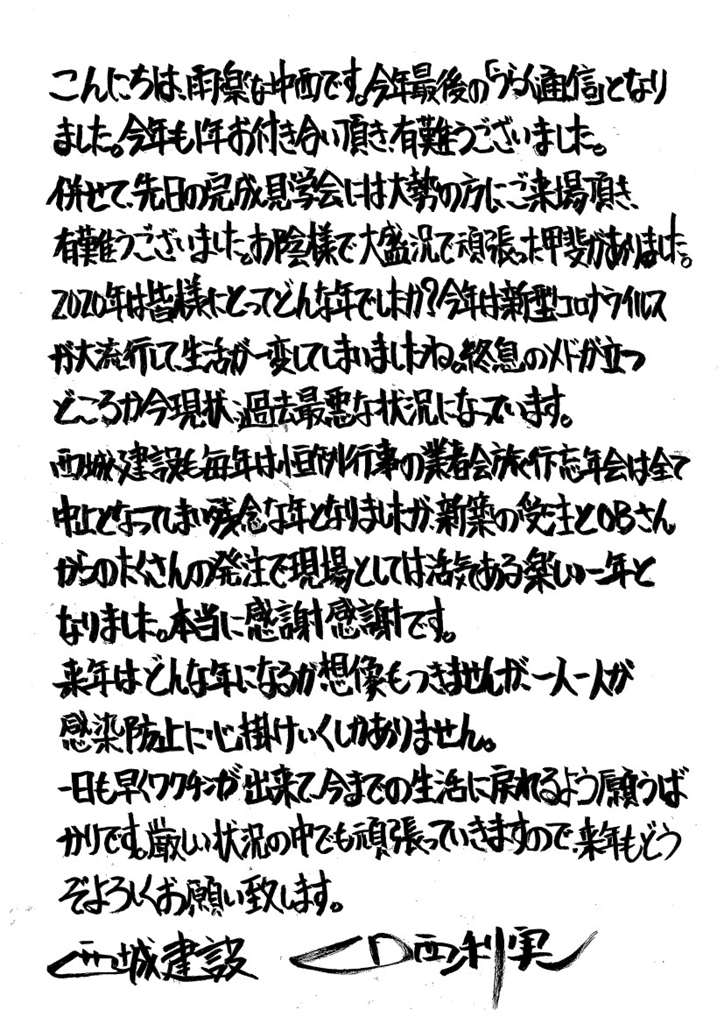 こんにちは、雨楽な中西です。今年最後の「うらく通信」となり
ました。今年も1年お付き合い頂き、有難うございました。
併せて、先日の完成見学会には大勢の方にご来場頂き、
有難うございました。お陰様で大盛況で頑張った甲斐がありました。
2020年は皆様にとってどんな年でしたか?今年は新型コロナウイルス
が大流行して、生活が一変してしまいましたね。終息のメドが立つ
どころか今現状、過去最悪な状況になっています。
西城建設も毎年は恒例行事の業者会旅行、忘年会は全て
中止となってしまい残念な年となりましたが、新築の受注とOBさん
からのたくさんの発注で現場としては活気ある楽しい一年と
なりました。本当に感謝感謝です。
来年はどんな年になるか想像もつきませんが、一人一人が
感染防止に心掛けいくしかありません。
一日も早くワクチンが出来て、今までの生活に戻れるよう願うば
かりです。厳しい状況の中でも頑張っていきますので、来年もどう
ぞよろしくお願い致します。
西城建設 中西利実